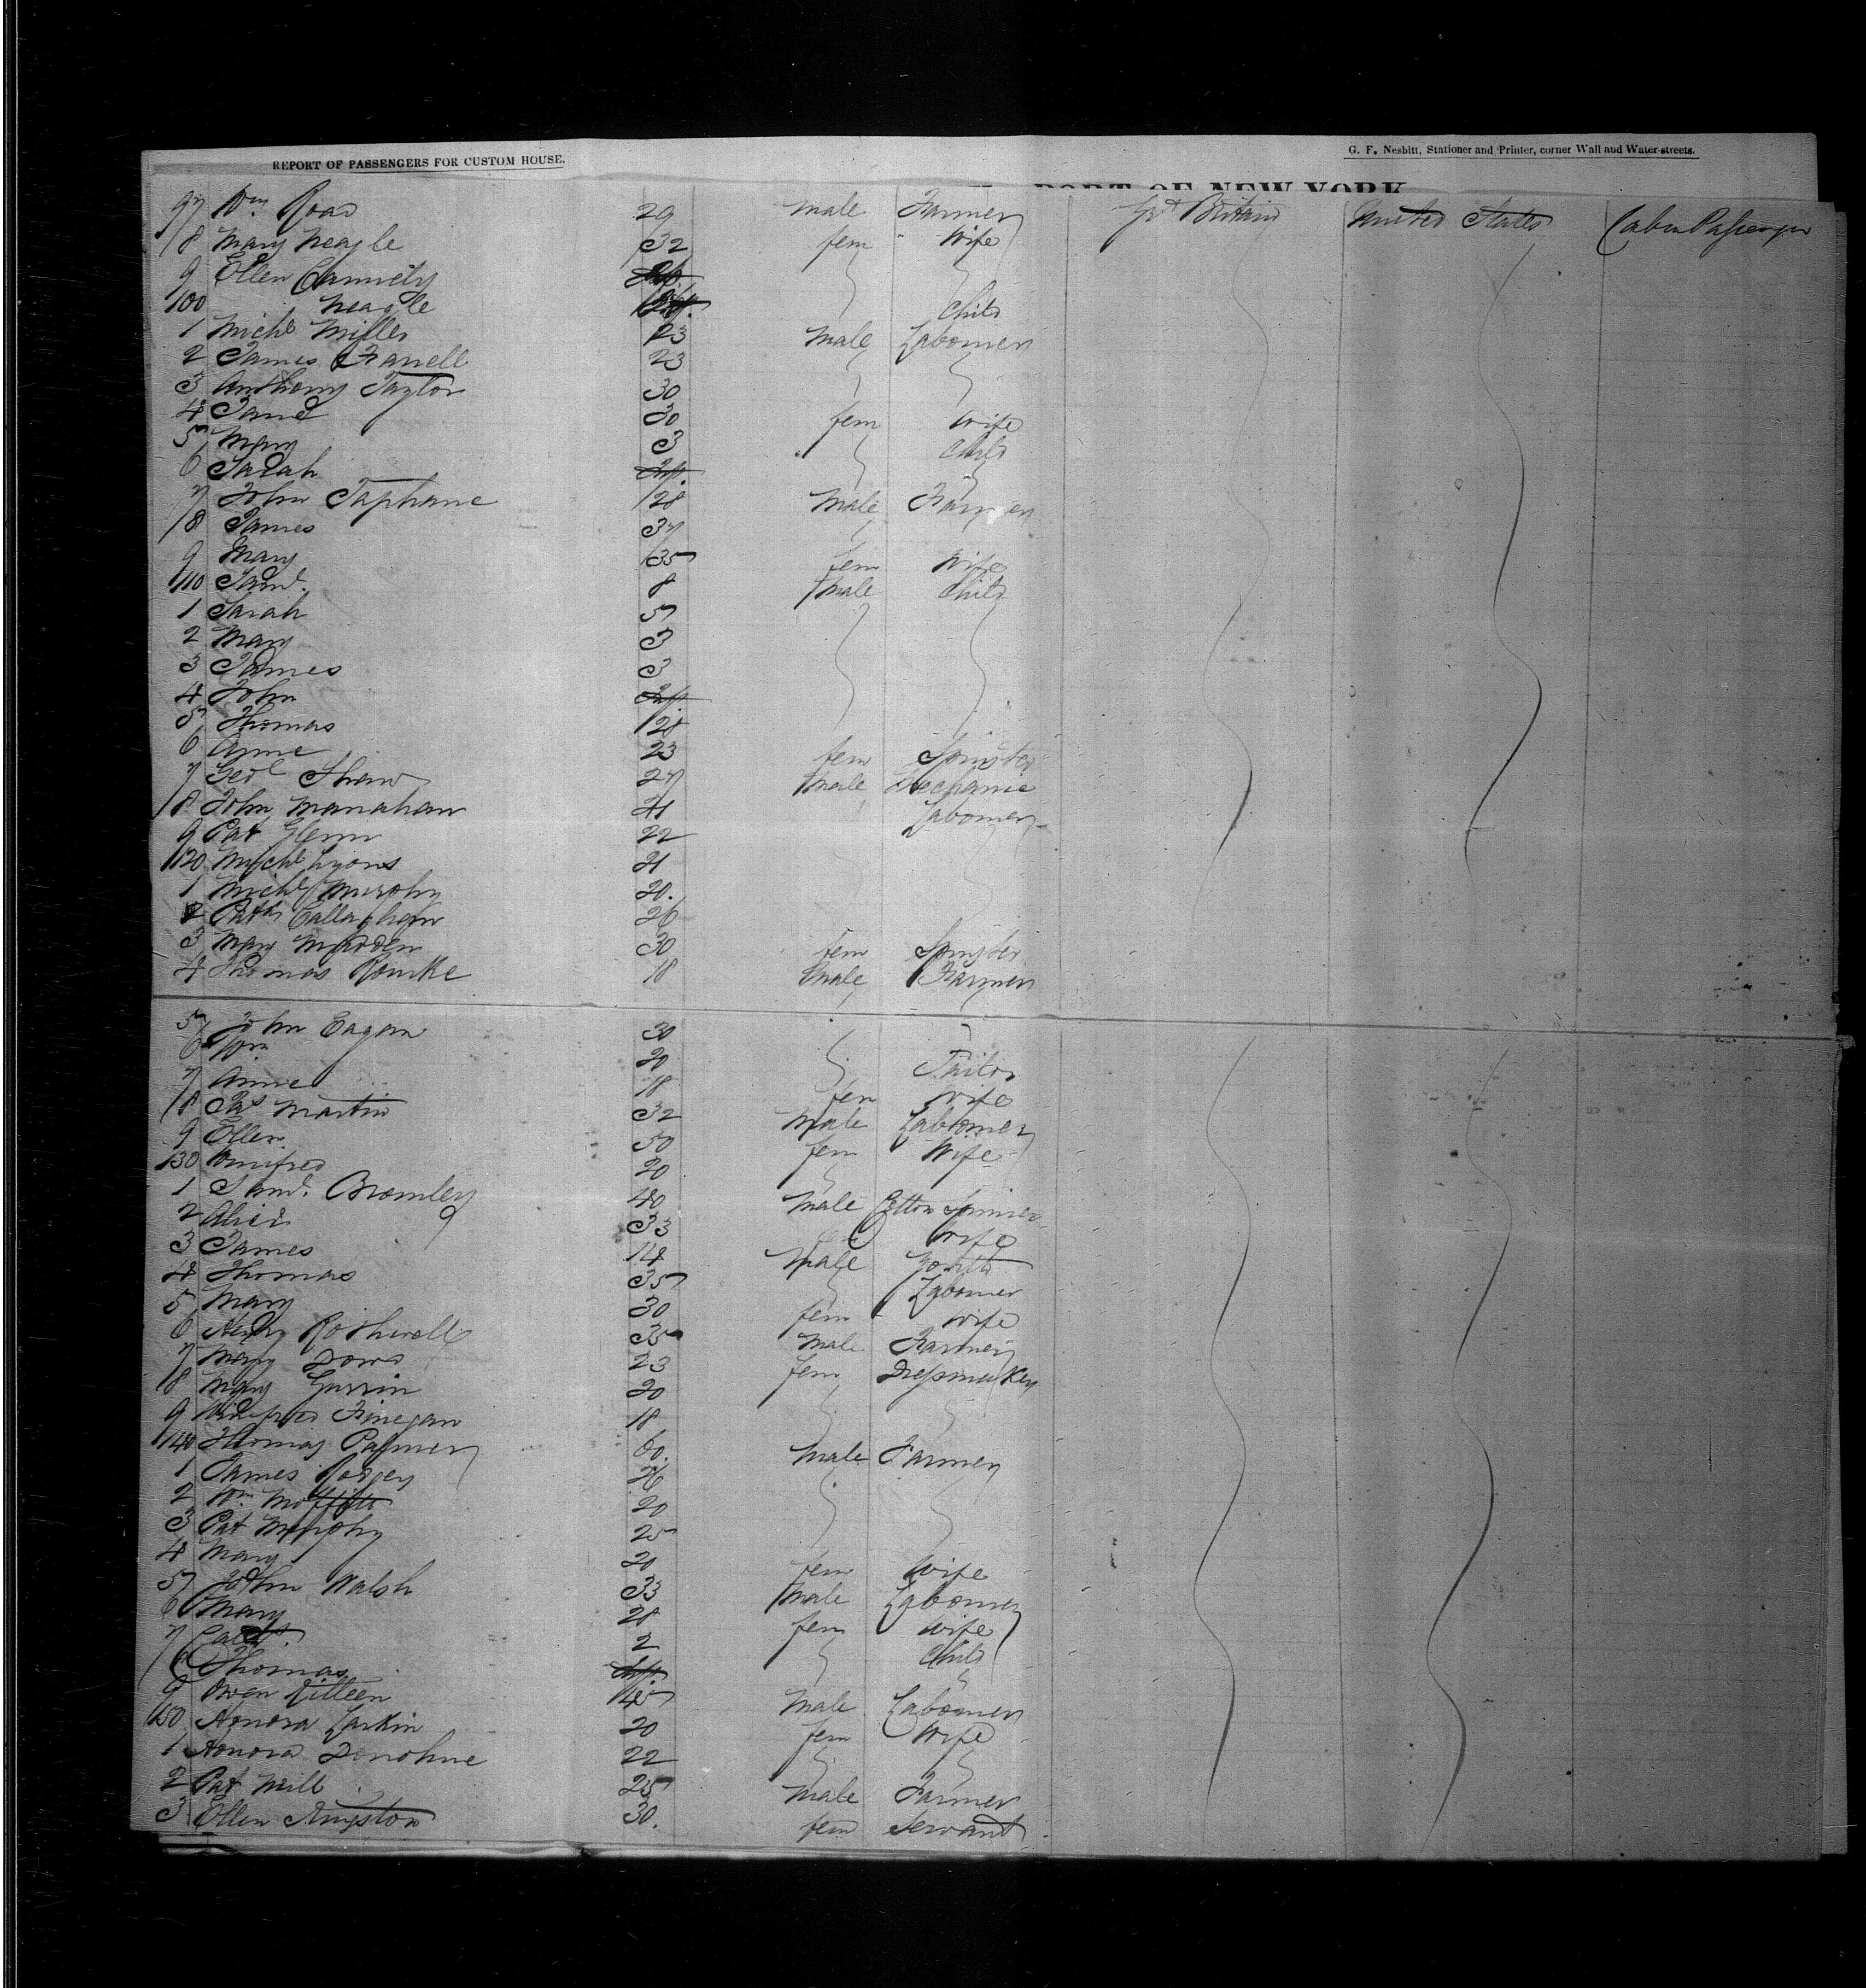 REPORT OF PASSENGERS FOR CUSTOM HOUSE.
G. F. Nesbitt, Stationer and Printer, corner Wall and Water-streets.
PORT OF NEW YORK
97 Wm Road 29 male Farmer Gt Britain United States Cabin Passenger
8 Mary Neagle 32 fem Wife
9 Ellen
100 Neagle Child
1 Michl Miller 23 Male Labourer
2 James Farrell 23
3 Anthony Taylor 30
4 Jane 30 fem Wife
5 Mary 3 Child
6 Sarah Inf.
7 John Taphane 28 Male Farmer
8 James 37
9 Mary 35 fem Wife
110 Saml. 8 Male Child
1 Sarah 5
2 Mary 3
3 James 3
4 John Inf.
5 Thomas 28
6 Anne 23 fem Spinster
7 Geo Shaw 27 Male Mechanic
8 John Manahan 21 Labourer
9 Pat Glenn 22
120 Michl Lyons 21
1 Michl Murphy 20.
2 Patk Callaghan 26
3 Mary Madden 30 fem Spinster
4 Thomas Rourke 18 Male Farmer
5 John Eagan 30
6 Wm 20 Tailor
7 Anne 18 fem Wife
8 Pat Martin 32 Male Labourer
9 Ellen 30 fem Wife
130 Winifred 20
1 Saml. Bromley 40 Male Cotton Spinner
2 Alice 33 Wife
3 James 14 Male Youth
4 Thomas 35 Labourer
5 Mary 30 fem Wife
6 Henry Rothwell 35 Male Farmer
7 Mary Dowd 23 fem Dressmaker
8 Mary 20
9 Winifred Finegan 18
140 Thomas Palmer 60. Male Farmer
1 James 26
2 Wm Moffitt 20
3 Pat Murphy 25
4 Mary 20 fem Wife
5 John Walsh 33 Male Labourer
6 Mary 28 fem Wife
7 2 Child
8 Thomas Inf.
9 Owen Killeen 45 Male Labourer
150 Honora Larkin 20 fem Wife
1 Honora Donohue 22
2 Pat Mill 25 Male Farmer
3 Ellen 30. fem Servant